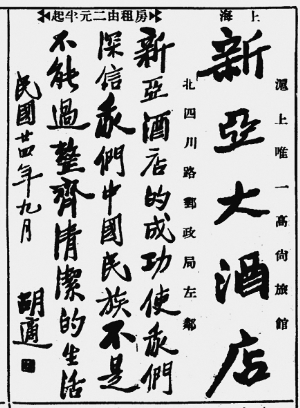 上海
滬上唯一高尚旅館
新亞大酒店
北四川路郵政局左鄰
房租由二元半起
新亞酒店的成功使我們
深信我們中國民族不是
不能過整齊清潔的生活
民國廿四年九月
胡適